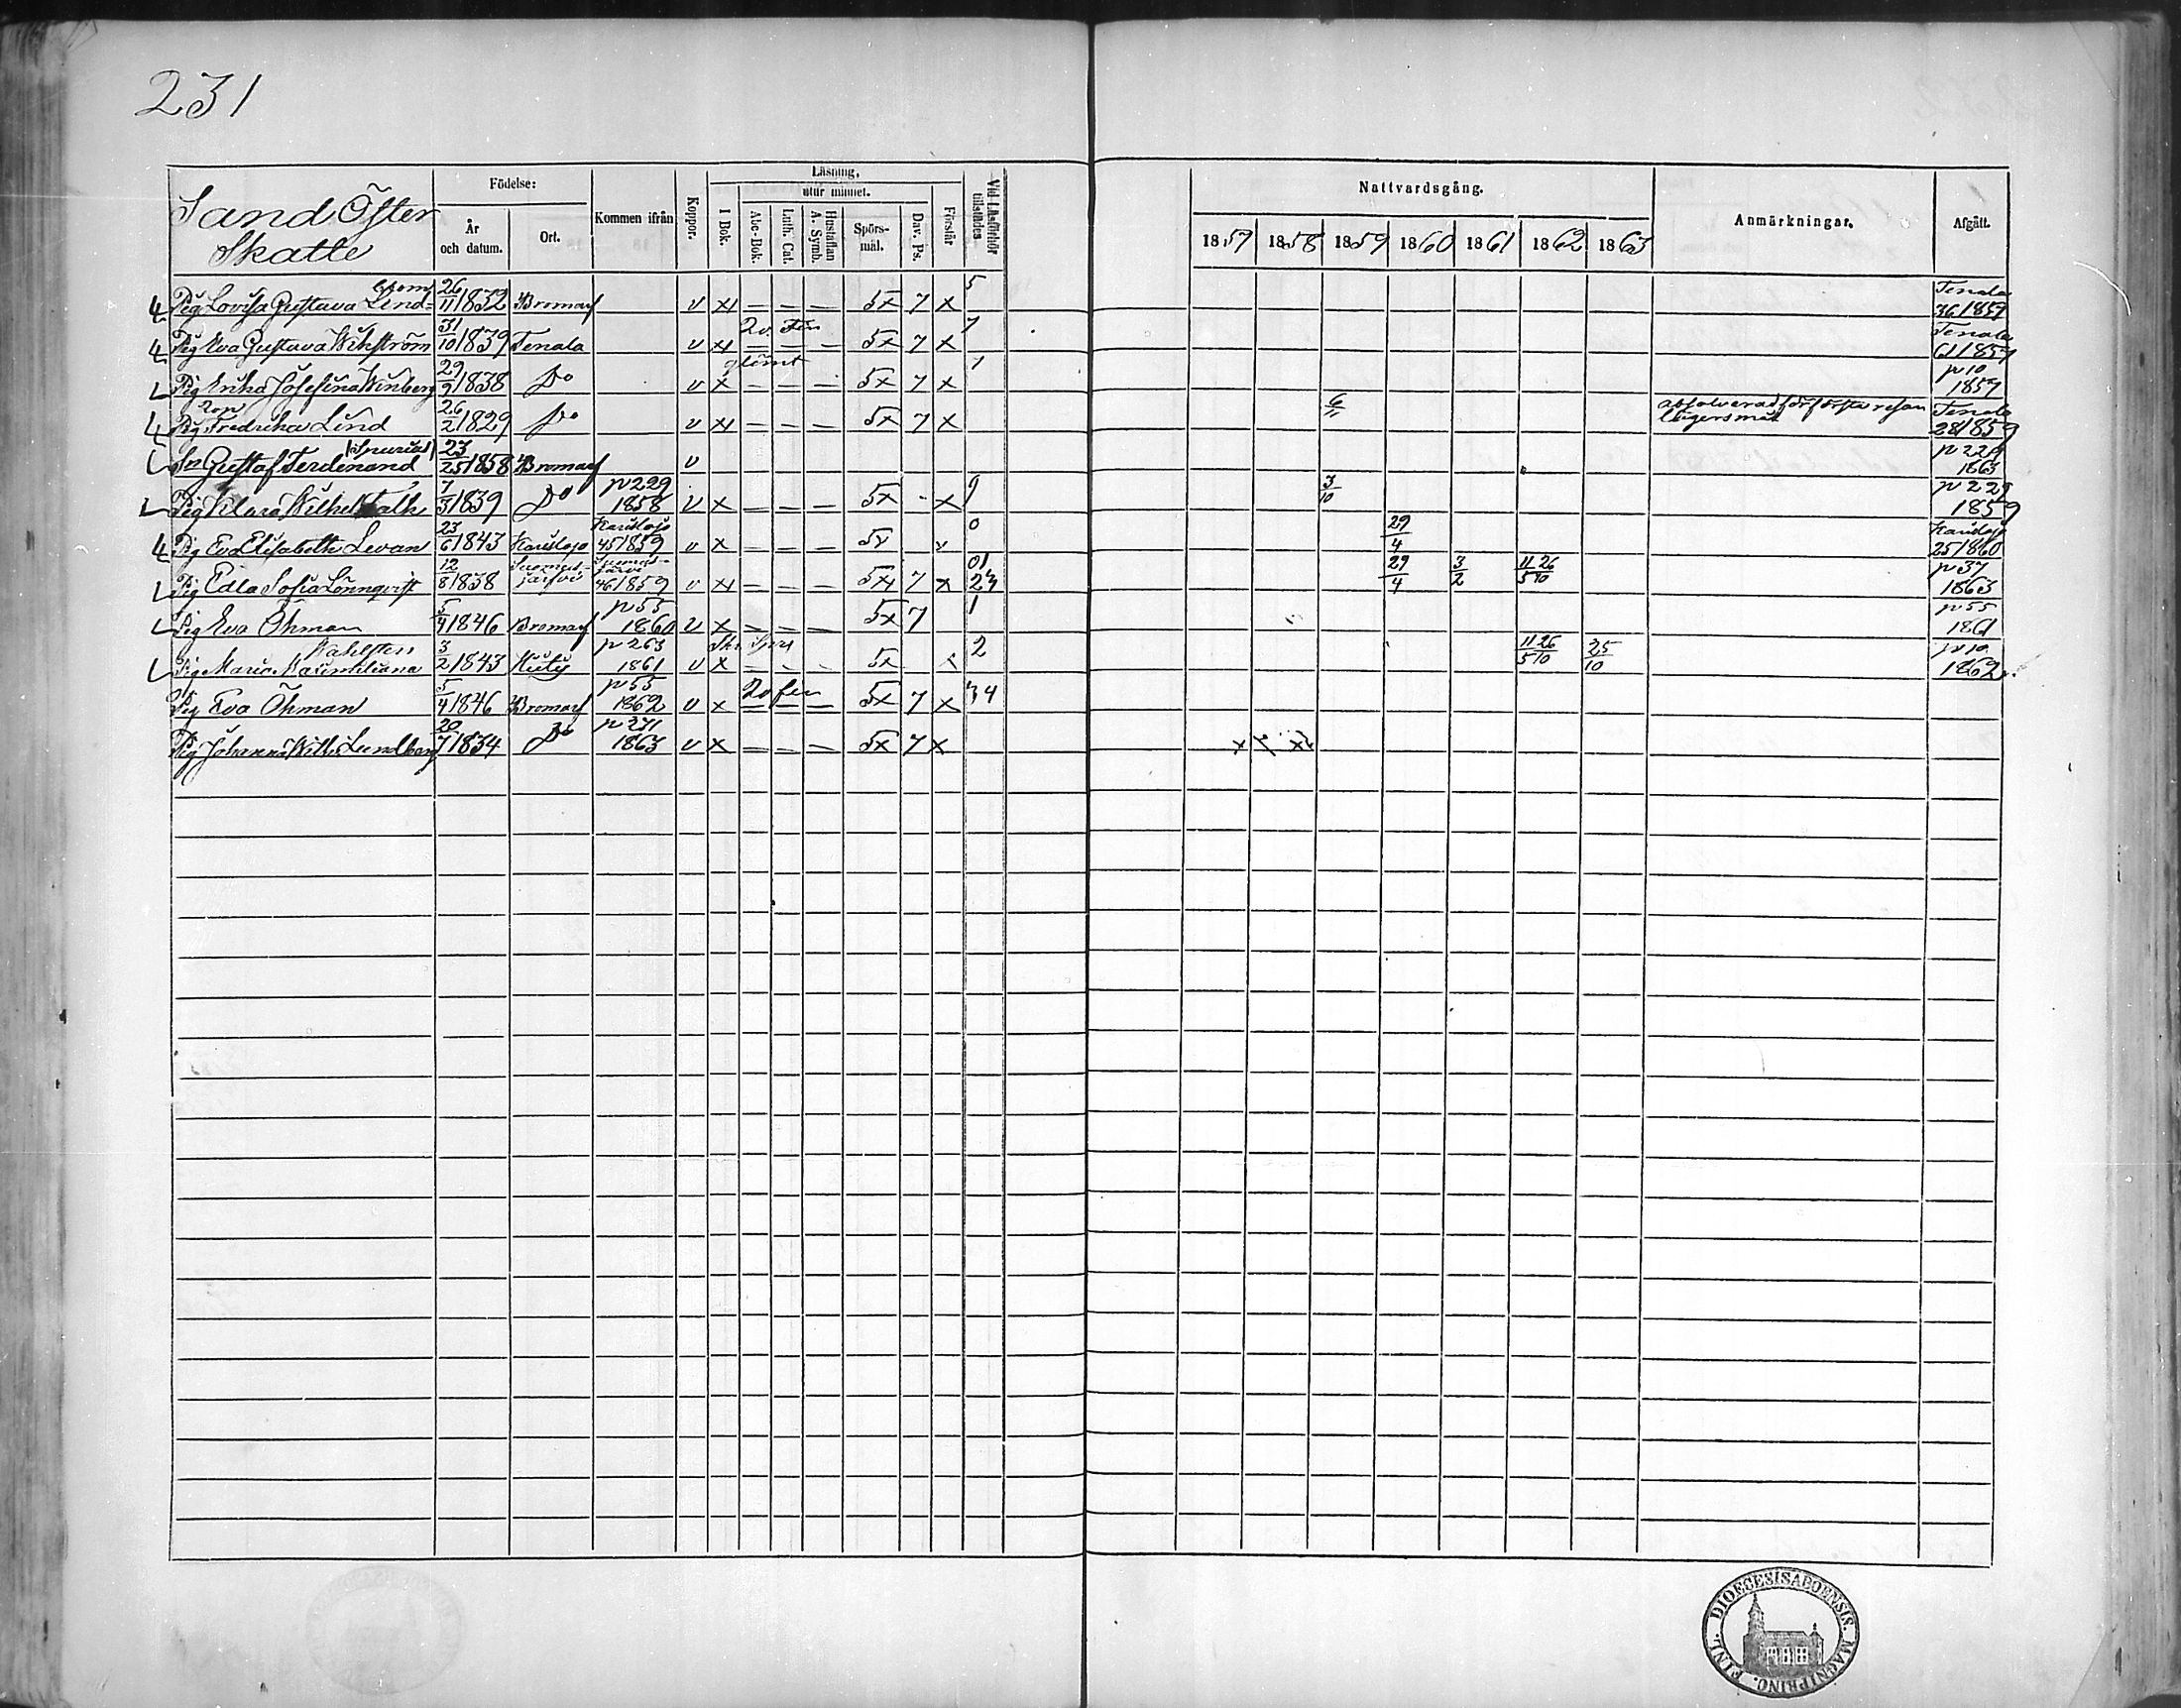 231
Sand Öster
Skatte
Födelse:
År och datum.
Ort.
Kommen ifrån
Koppor.
Läsning.
I Bok.
utur minnet.
Abc-Bok.
Luth. Cat.
Hustaflan A. Symb.
Spörs-mål.
Dav. Ps.
Förstår
Vid Läsförhör tillstädes
Nattvardsgång.
1857 1858 1859 1860 1861 1862 1863
Anmärkningar.
Afgått.
Pig Lovisa Gustava Lind= 26/11 1832 Bromarf v x — — — 5x 7 x 5 Tenala 36/1857
Pig Eva Gustava Wikström 31/10 1839 Tenala v x — — — 5x 7 x 7 Tenala 61/1857
glömt
Pig Erika Josefina Winberg 29/9 1838 Do v x — — — 5x 7 x 1 p 10 1857
Pig Fredrika Lind 26/2 1829 Do v x — — — 5x 7 x 6/11 absolverad för första resan lägersmål Tenala 28/1859
Sn Gustaf Ferdinand (Spurius) 23/25 1858 Bromarf v p 229 1863
Pig Klara Wilhel 7/3 1839 Do p 229 1858 v x — — — 5x - x 9 3/10 p 229 1859
Pig Eva Elisabeth Levan 23/6 1843 Karislojo Karislojo 45/1859 v x — — — 5v v 0 29/4 Karislojo 25/1860
Pig Edla Sofia Lönnqvist 12/8 1838 Suomusjärvi Suomusjärvi 46/1859 v x — — — 5x 7 x 01 23 29/4 3/2 11 26/5 10 p 37 1863
Pig Eva Öhman 5/4 1846 Bromarf p 55 1860 v x — — — 5x 7 1 p 55 1861
Pig Maria Maximiliana Wahlsten 3/2 1843 Kisko p 263 1861 v x — — — 5x x 2 11 26/5 10 25/10 p 10 1862
Pig Eva Öhman 5/4 1846 Bromarf p 55 1862 v x — — — 5x 7 x 34
Pig Johanna Wilh. Lundberg 20/7 1834 Do p 271 1863 v x — — — 5x 7 x
FINL. DIOECESIS ABOENSIS. MAGNI PRINC.